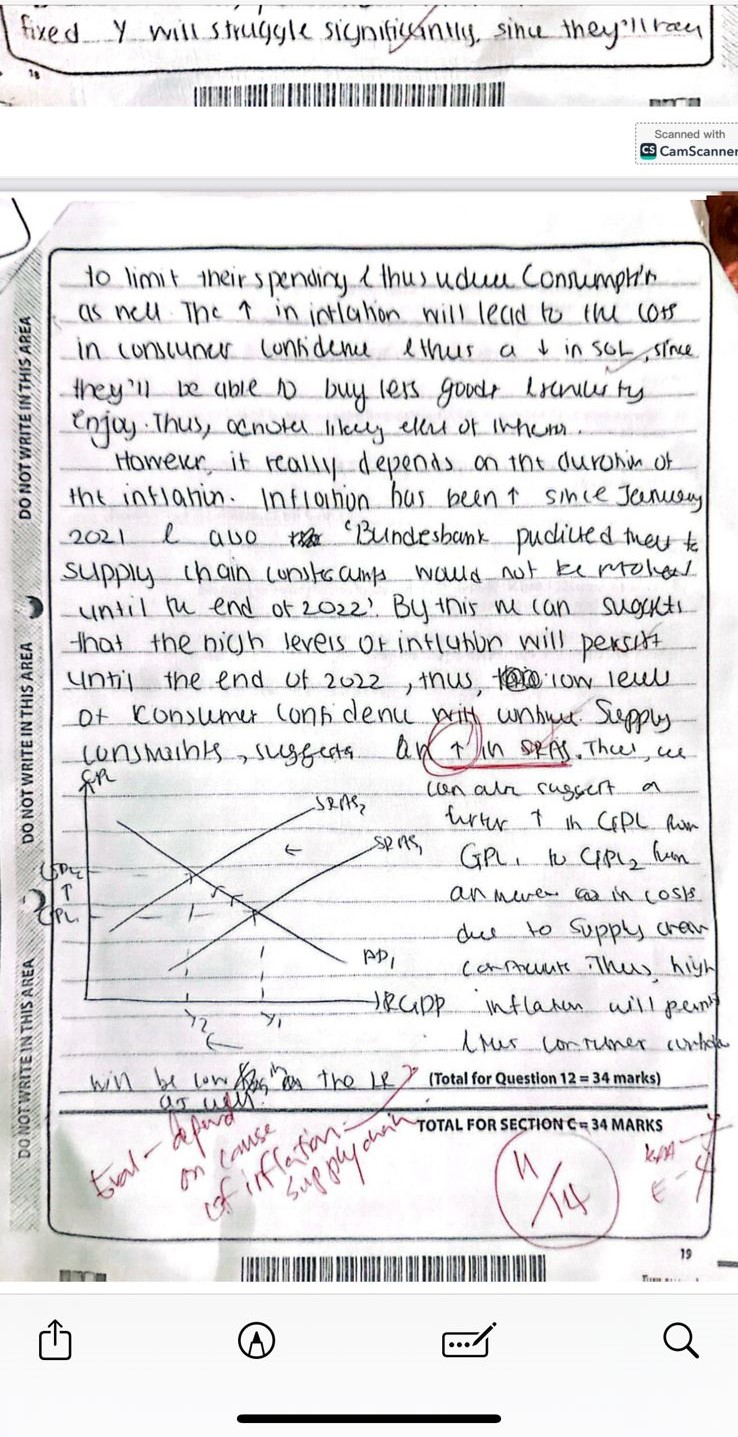 fixed Y will struggle significantly, since they'll
18
Scanned with
CS CamScanner
to limit their spending & thus reduce Consumpt'n
as well. The ↑ in inflation will lead to the loss
in consumer confidence & thus a ↓ in SOL, since
they'll be able to buy less goods & services they
enjoy. Thus, another likely effect of inflation.
However, it really depends on the duration of
the inflation. Inflation has been ↑ since January
2021 & also 'Bundesbank predicted these
supply chain constraints would not be resolved
until the end of 2022'. By this we can suggest
that the high levels of inflation will persist
until the end of 2022, thus, low levels
of consumer confidence will continue. Supply
constraints, suggests an ↑ in SRAS. Thus, we
can also suggest a
further ↑ in GPL from
GPL, to GPL2 from
in costs
due to supply chain
constraints. Thus, high
inflation will persist
& thus consumer
will be low in the LR
as well.
GPL
SRAS2
SRAS1
GPL2
↑
GPL1
AD1
RGDP
Y2
Y1
DO NOT WRITE IN THIS AREA
DO NOT WRITE IN THIS AREA
DO NOT WRITE IN THIS AREA
(Total for Question 12 = 34 marks)
TOTAL FOR SECTION C = 34 MARKS
Eval - depend
on cause
of inflation -
supply chain
11/14
KAA - 7
E - 4
19